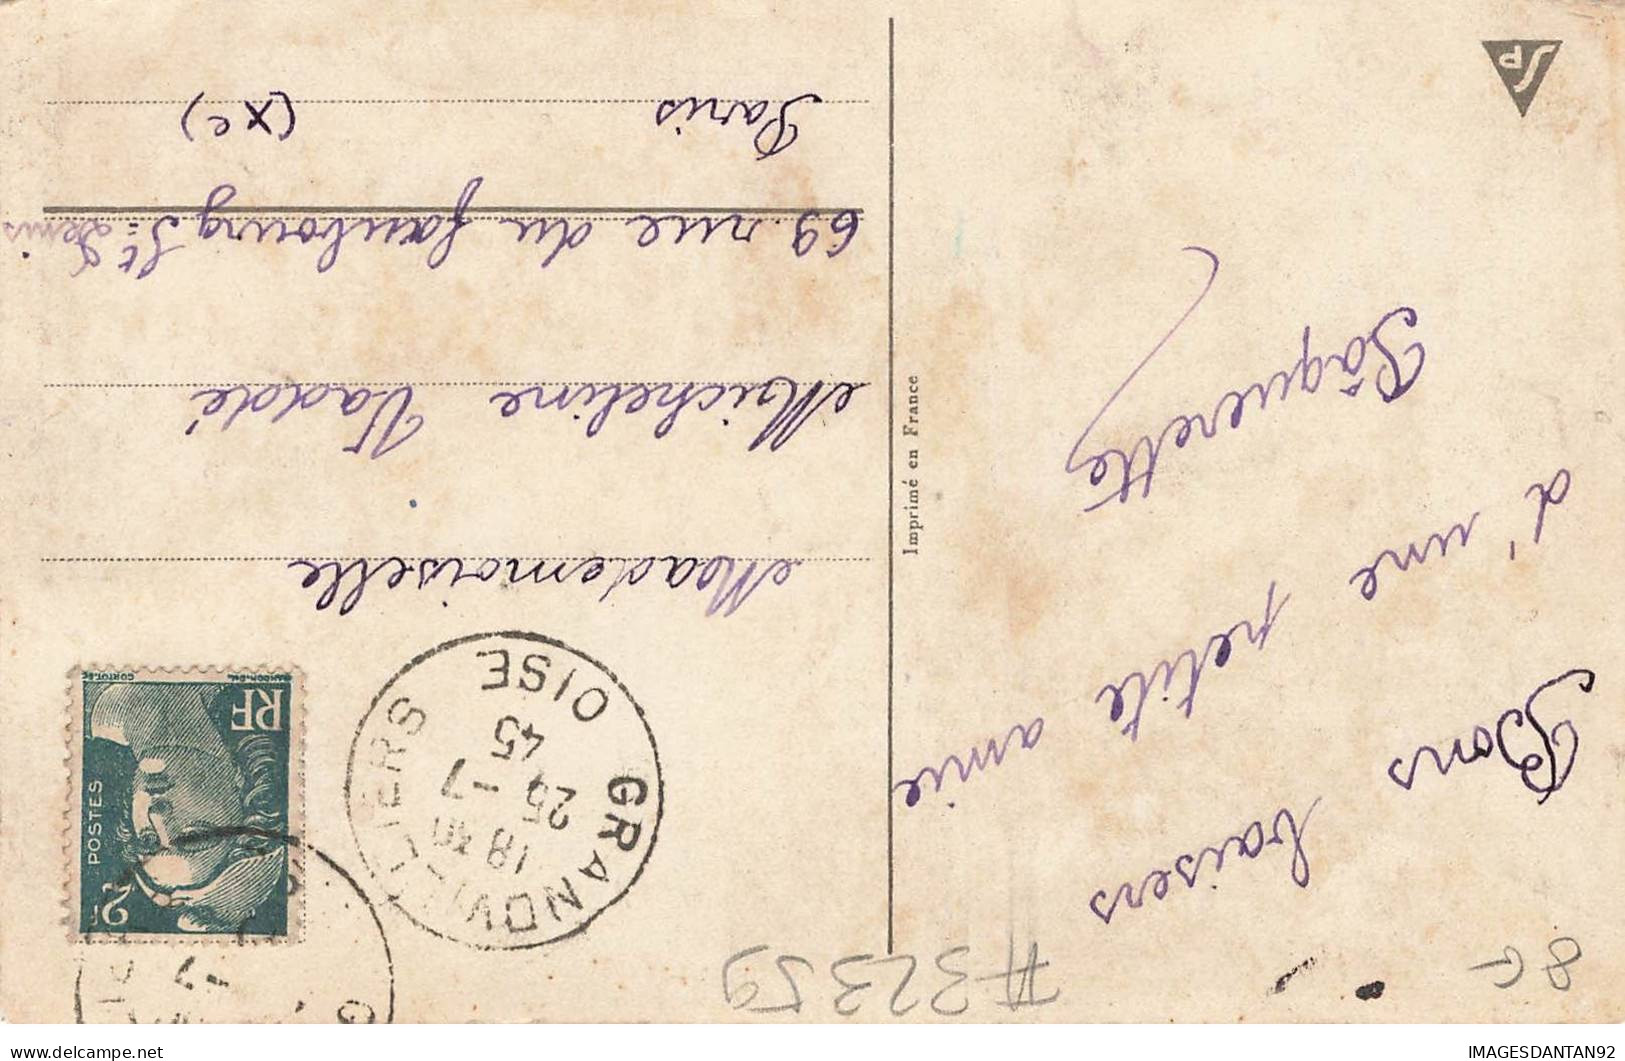 Bons baisers
d'une petite amie
Pâquerette
Imprimé en France
SP
Mademoiselle
Micheline Vaddé
69 rue du faubourg St= Denis
Paris (Xe)
GRANDVILLIERS
OISE
18 H
26 -7
45
RF
POSTES
2F
G
-7
#32359
IMAGESDANTAN92
delcampe.net